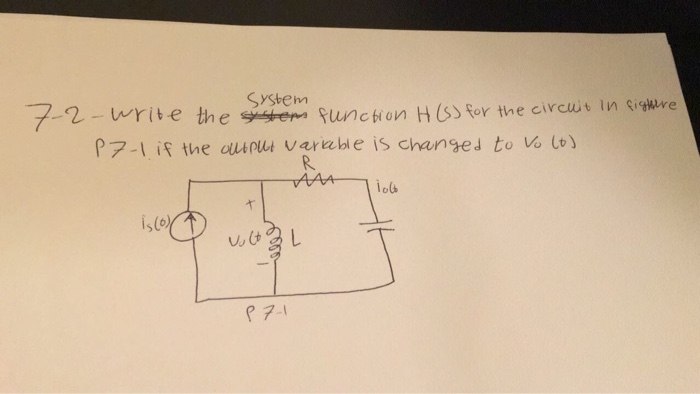 System
7-2-write the system function H(s) for the circuit in figure
P7-1 if the output variable is changed to Vo (t)
R
io(t)
+
is(t)
Vo(t)
L
-
P 7-1